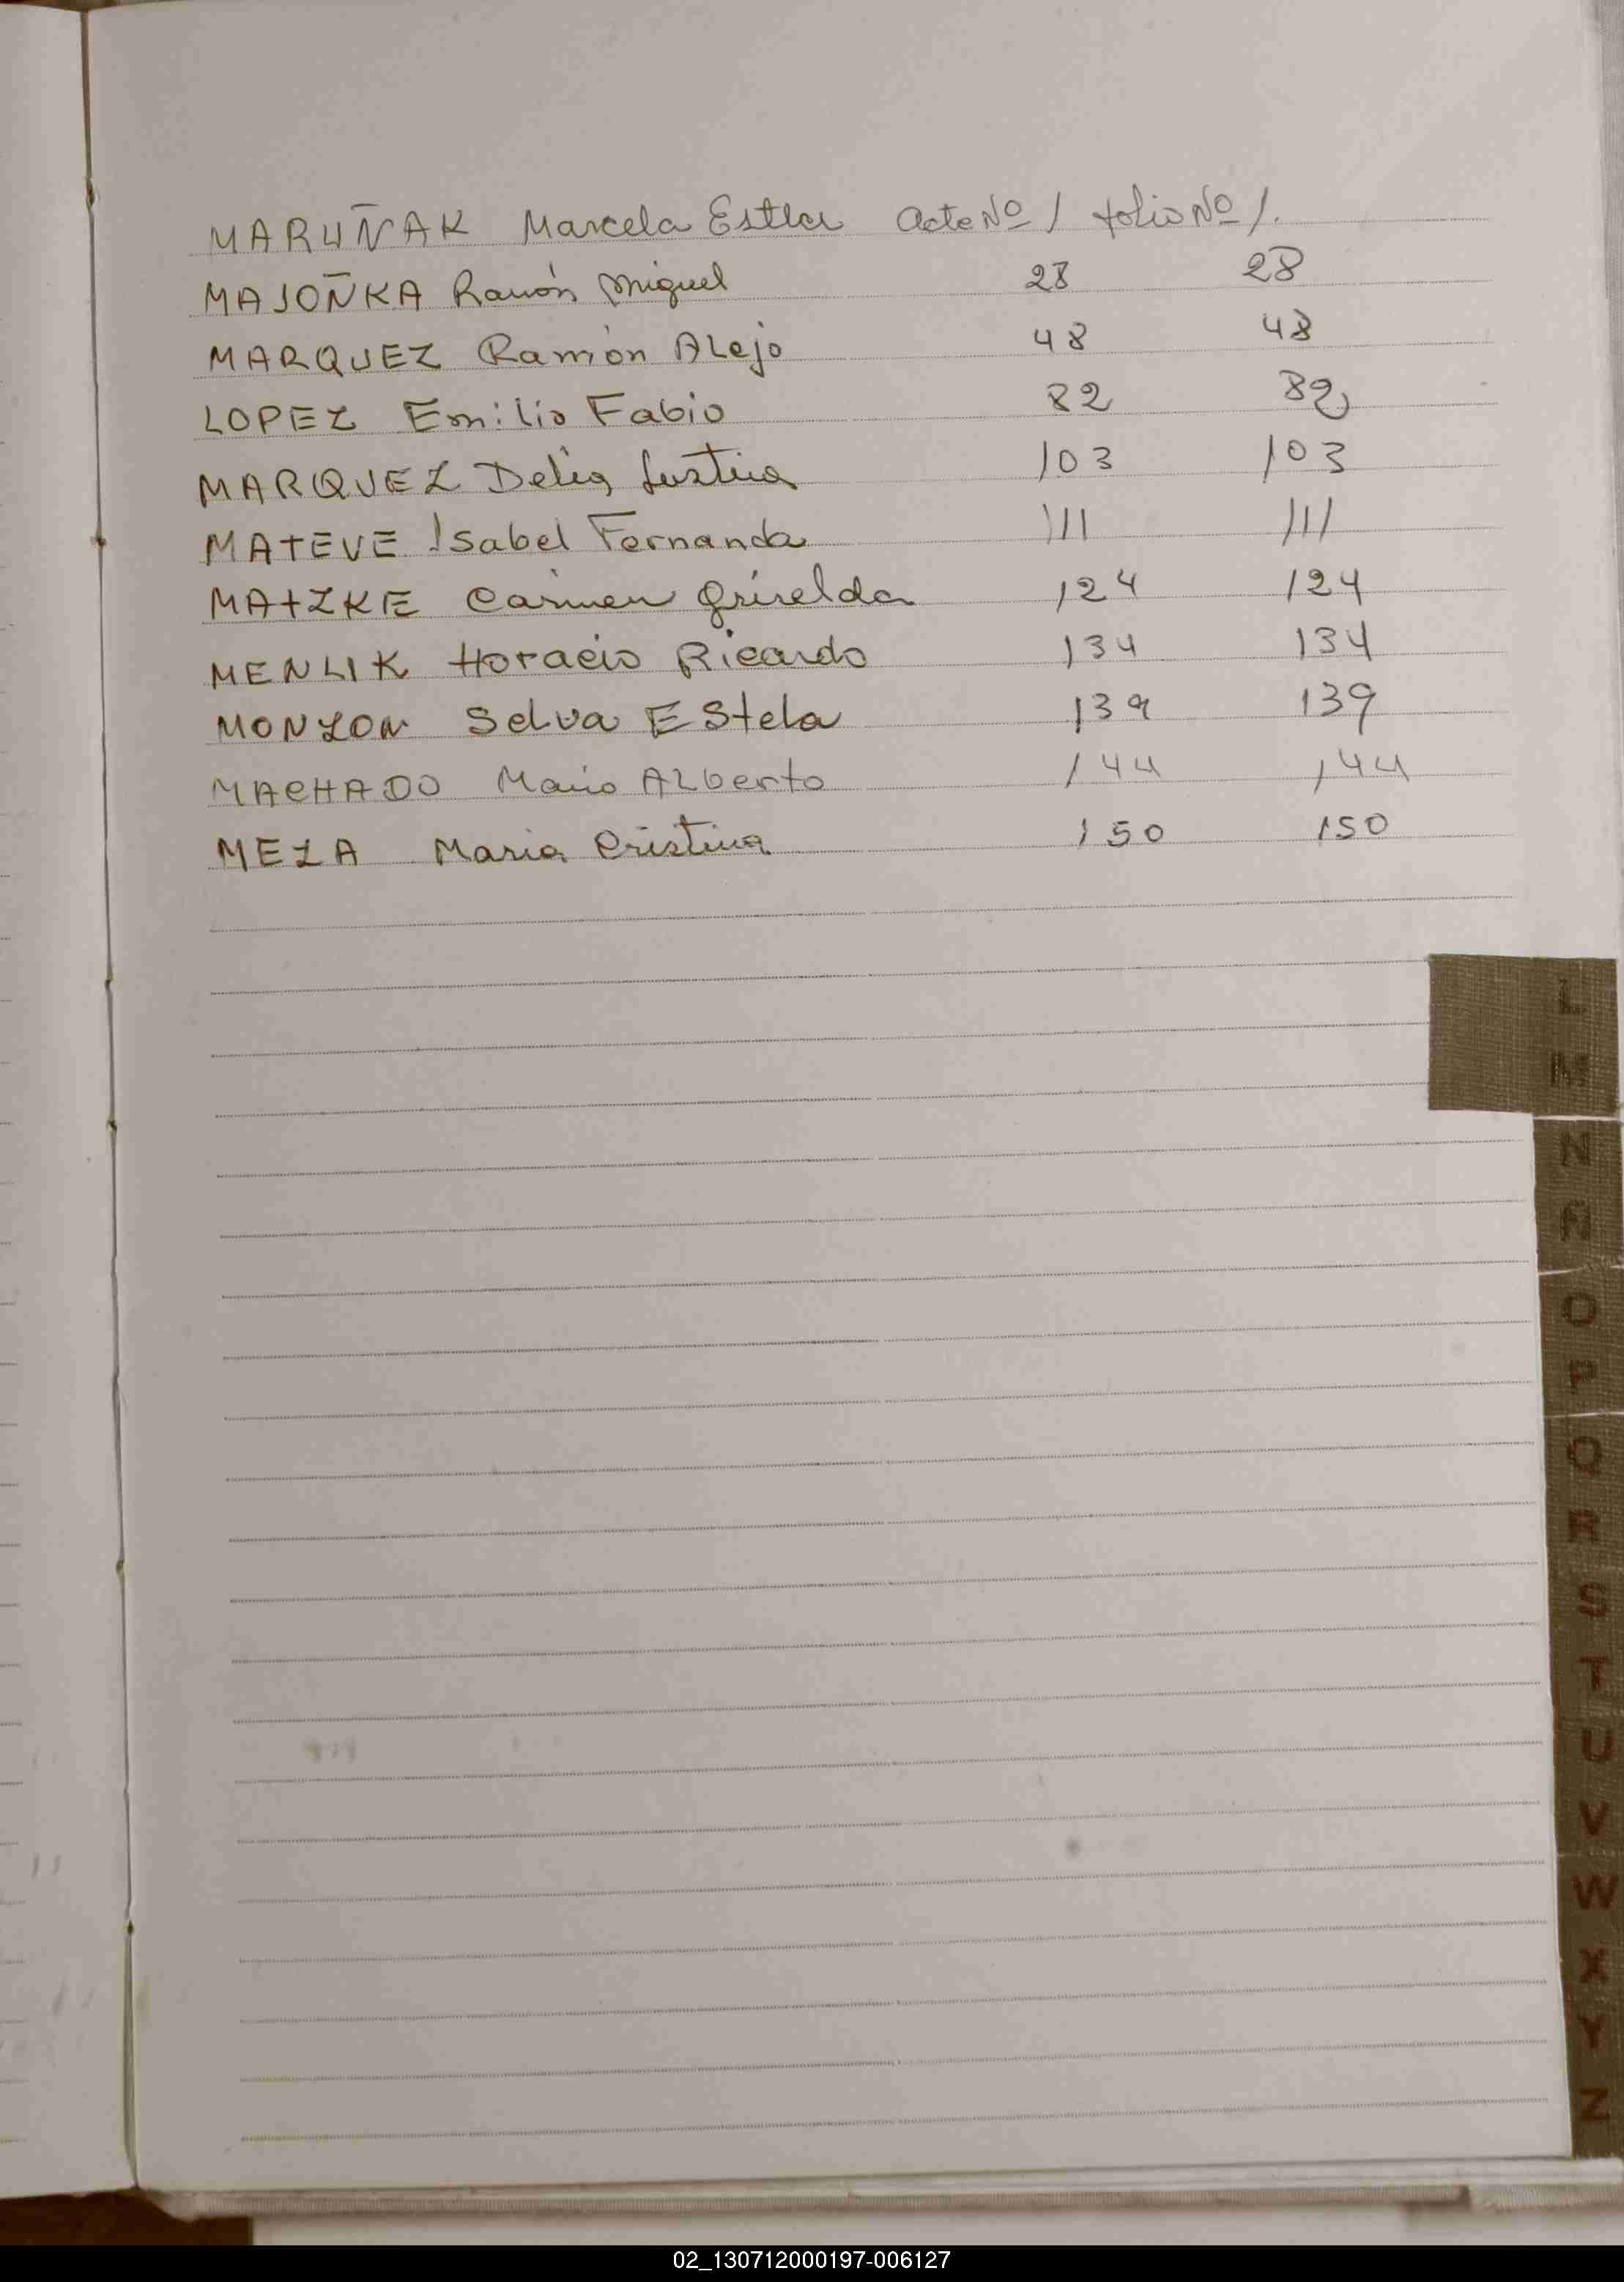 MARUÑAK Marcela Esther Acta Nº 1 folio Nº 1.
MAJOÑKA Ramón Miguel 28 28
MARQUEZ Ramón Alejo 48 48
LOPEZ Emilio Fabio 82 82
MARQUEZ Delia 103 103
MATEVE Isabel Fernanda 111 111
MATZKE Carmen Griselda 124 124
MENLIK Horacio Ricardo 134 134
MONZON Selva EStela 139 139
MACHADO Mario ALberto 144 144
MEZA Maria Cristina 150 150
L
M
N
Ñ
O
P
Q
R
S
T
U
V
W
X
Y
Z
02_130712000197-006127